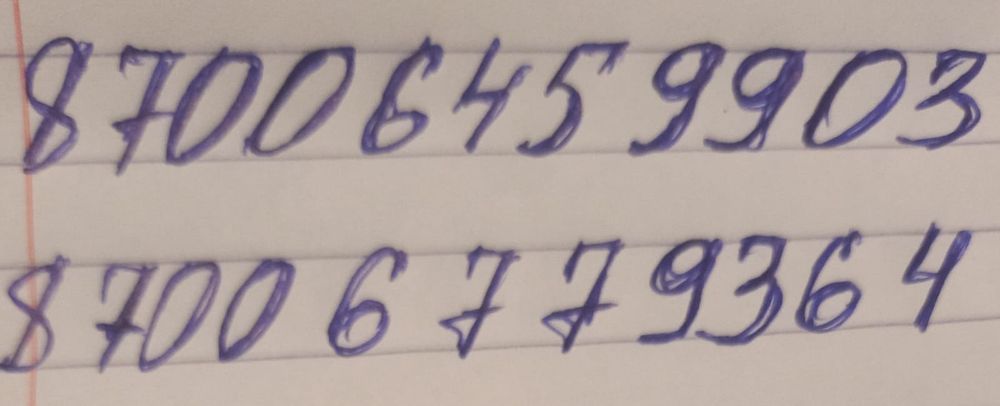 87006459903
87006779364